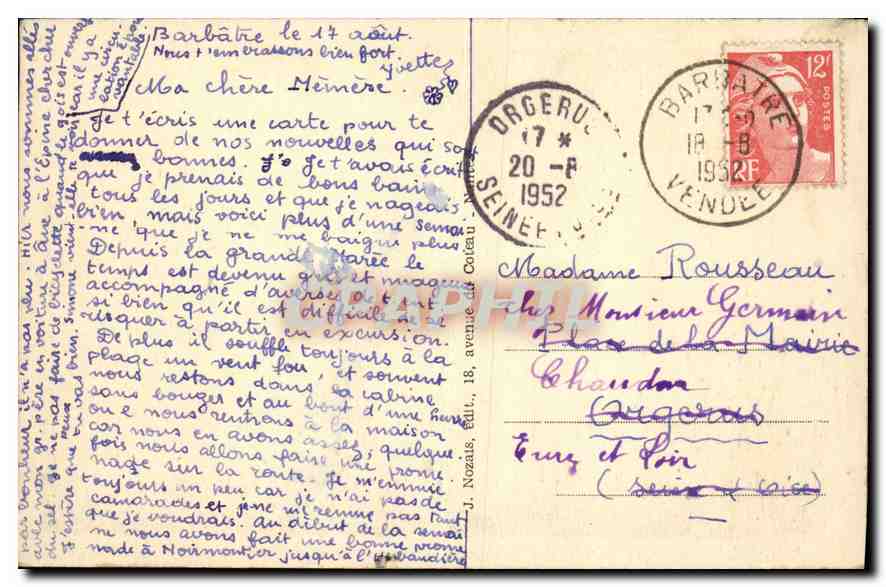 Barbâtre le 17 août.
Nous t'embrassons bien fort
Yvette
Ma chère Mémère.
Je t'écris une carte pour te
donner de nos nouvelles qui sont
bonnes. Je t'avais écrit
que je prenais de bons bains
tous les jours et que je nageais
bien, mais voici plus d'une semai
ne que je ne me baigne plus
Depuis la grande marée le
temps est devenu gris et nuageux
accompagné d'averses
si bien qu'il est difficile de se
risquer à partir en excursion.
De plus il souffle toujours à la
plage un vent fou, et souvent
nous restons dans la cabine
sans bouger et au bout d'une heure
ou 2 nous rentrons à la maison
car nous en avons assez, quelque
fois nous allons faire une prome
nade sur la route. Je m'ennuie
toujours un peu car je n'ai pas de
camarades et je ne me remue pas tant
que je voudrais. Au début de la semai
ne nous avons fait une bonne prome
nade à Noirmoutier jusqu'à
par bonheur il n'a pas plu. Hier nous sommes allés
avec mon gr. père en voiture à âne à l'Epine chercher
du sel. Je ne peux pas faire de bicyclette quand
J'espère que tu vas bien. Simone
car il y a
une circu-
lation épou
vantable.
J. Nozais, édit., 18, avenue du Coteau - Nantes
ORGERUS
17 *
20 -8
1952
SEINE
BARBATRE
18 -8
1952
VENDEE
12F
POSTES
RF
Madame Rousseau
chez Monsieur Germain
Place de la Mairie
Chaudon
Orgerus
Eure et Loir
(Seine et Oise)
DELCAMPHIL